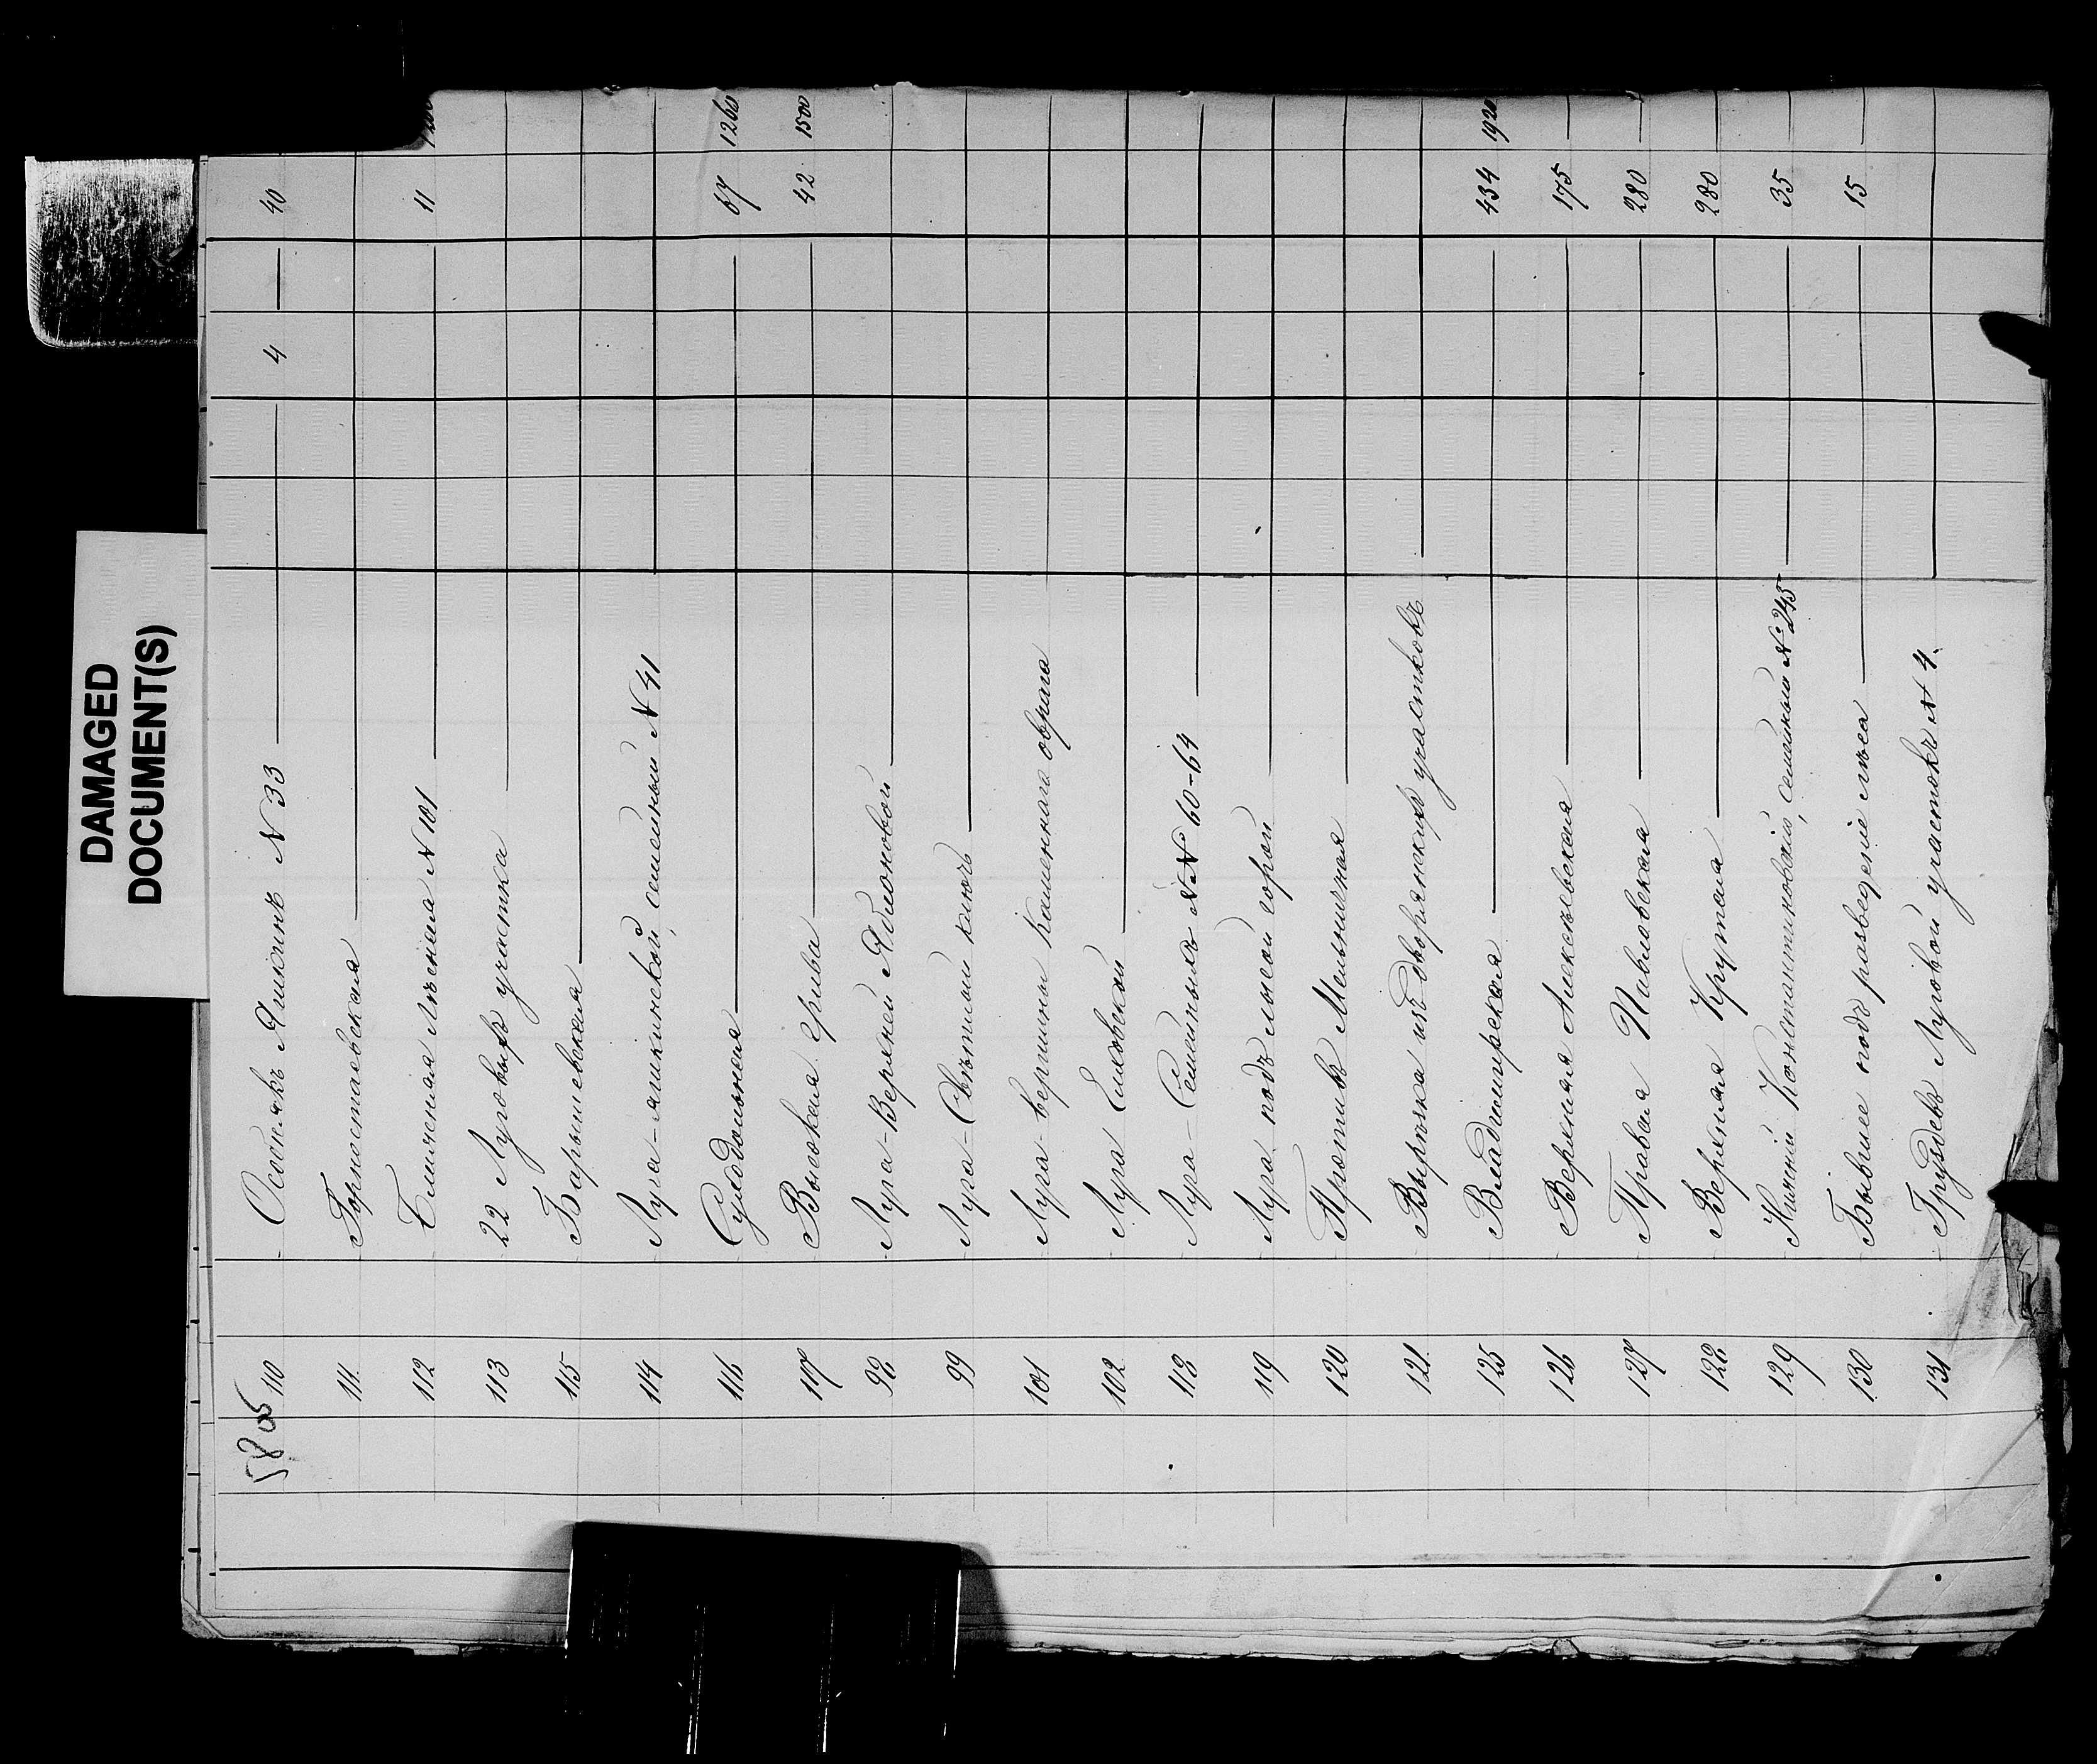 DAMAGED
DOCUMENT(S)
5805
110 Особнякъ Яшкинъ N 33 4 40
111. Горностаевская
112 Ближняя Лѣсная N 101 11
113 22 Луговыхъ участка
115 Барышевская
114 Луга-яшкинской, семейный N 41
116 Суходольная 67 1260
117 Высокая грива 42 1500
98 Луга-Верхней Яблоновой
99 Луга-Свѣтлый ключъ
101 Луга-вершины Каменнаго оврага
102 Луга Елховской
118 Луга-Семейныхъ NN 60-64
119 Луга подъ лысой горой
120 Противъ Мельничная
121. Вырѣзка изъ дворянскихъ участковъ
125 Владимирская 434 1920
126 Верхняя Алексѣевская 175
127 Правая Павловская 280
128 Верхняя Крутая 280
129 Нижній Константиновскій, семейный № 245 35
130 Бывшее подъ разведеніе лѣса 15
131 Груздевъ Луговой участокъ N 4.